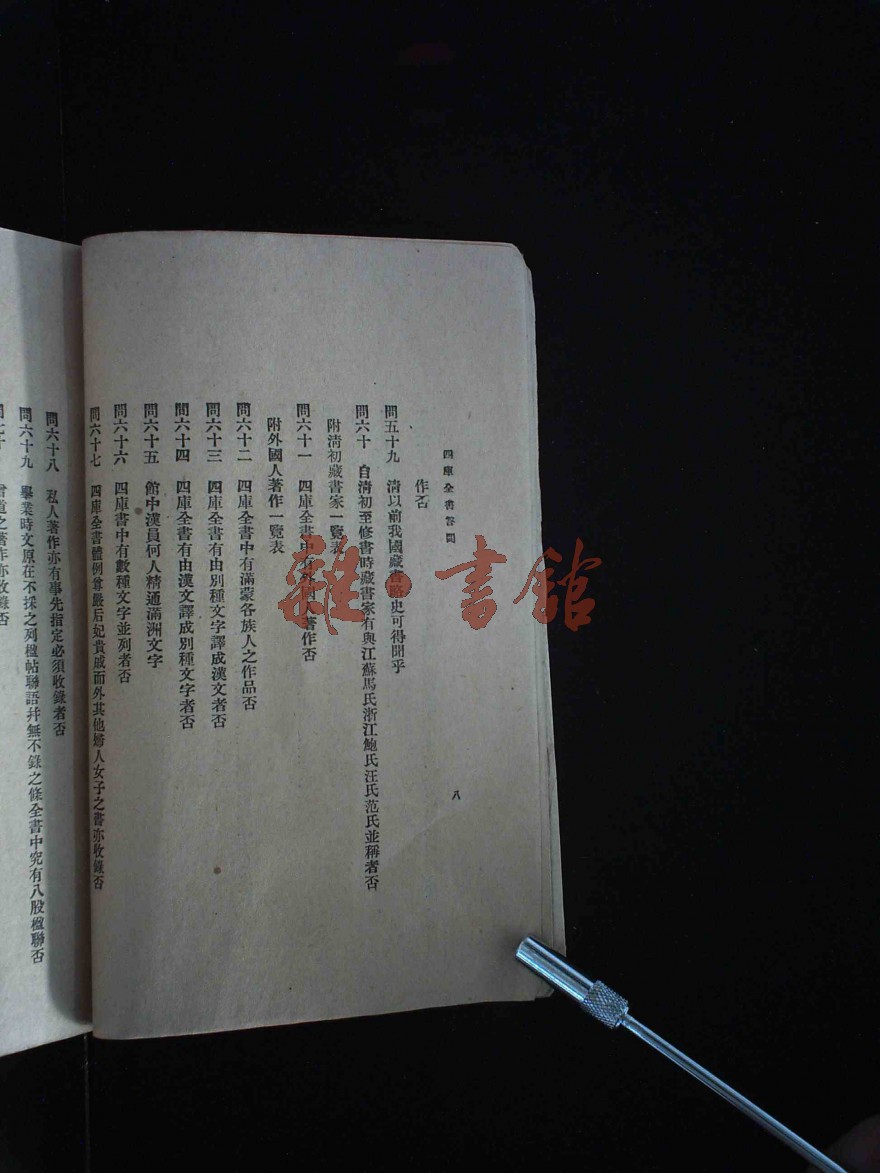 四庫全書答問
八
作否
問五十九　清以前我國藏書略史可得聞乎
問六十　自清初至修書時藏書家有與江蘇馬氏浙江鮑氏汪氏范氏並稱者否
附清初藏書家一覽表
問六十一　四庫全書中有外國人著作否
附外國人著作一覽表
問六十二　四庫全書中有滿蒙各族人之作品否
問六十三　四庫全書有由別種文字譯成漢文者否
問六十四　四庫全書有由漢文譯成別種文字者否
問六十五　館中漢員何人精通滿洲文字
問六十六　四庫書中有數種文字並列者否
問六十七　四庫全書體例尊嚴后妃貴戚而外其他婦人女子之書亦收錄否
問六十八　私人著作亦有事先指定必須收錄者否
問六十九　畢業時文原在不採之列楹帖聯語幷無不錄之條全書中究有八股楹聯否
之著作亦收錄否
雜·書館